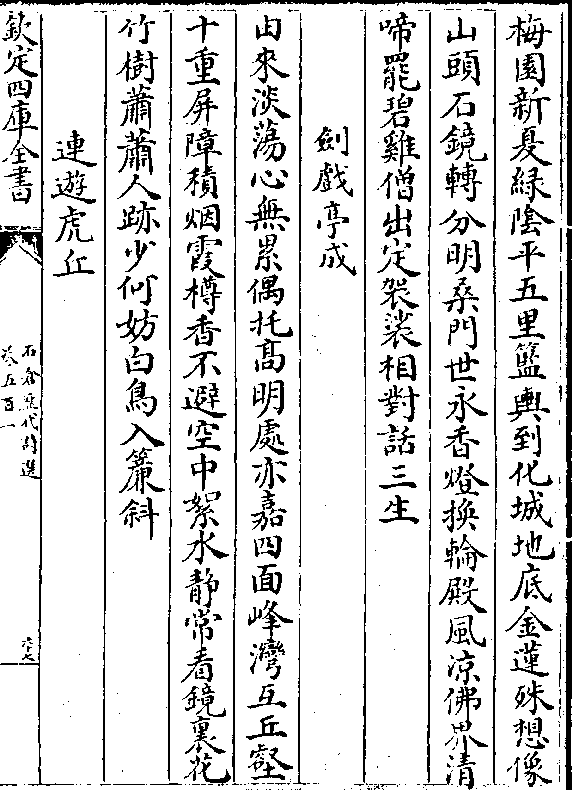 梅園新夏緑陰平五里籃輿到化城地底金蓮殊想像
山頭石鏡轉分明桑門世永香燈換輪殿風凉佛界清
啼罷碧雞僧出定袈裟相對話三生
劍戲亭成
由來淡蕩心無累偶托髙明處亦嘉四面峰灣互丘壑
十重屏障積烟霞樽香不避空中絮水静常看鏡裏花
竹樹蕭蕭人跡少何妨白鳥入簾斜
連遊虎丘
欽定四庫全書
石倉歴代詩選
卷五百一
六十七